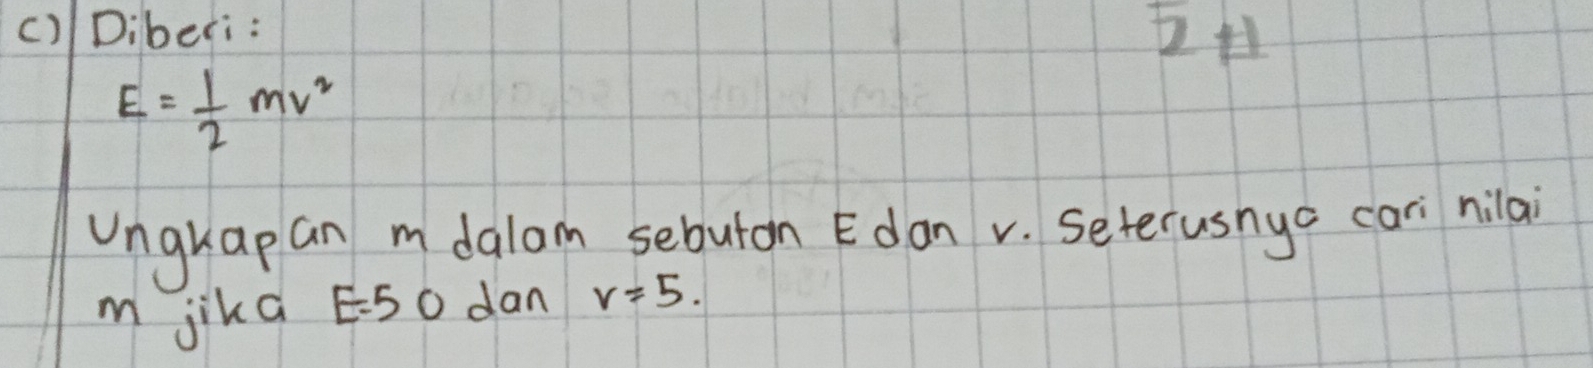 c) Diberi:
E = 1/2 mv²
Ungkapan m dalam sebutan E dan v. Seterusnya cari nilai
m jika E=50 dan v=5.